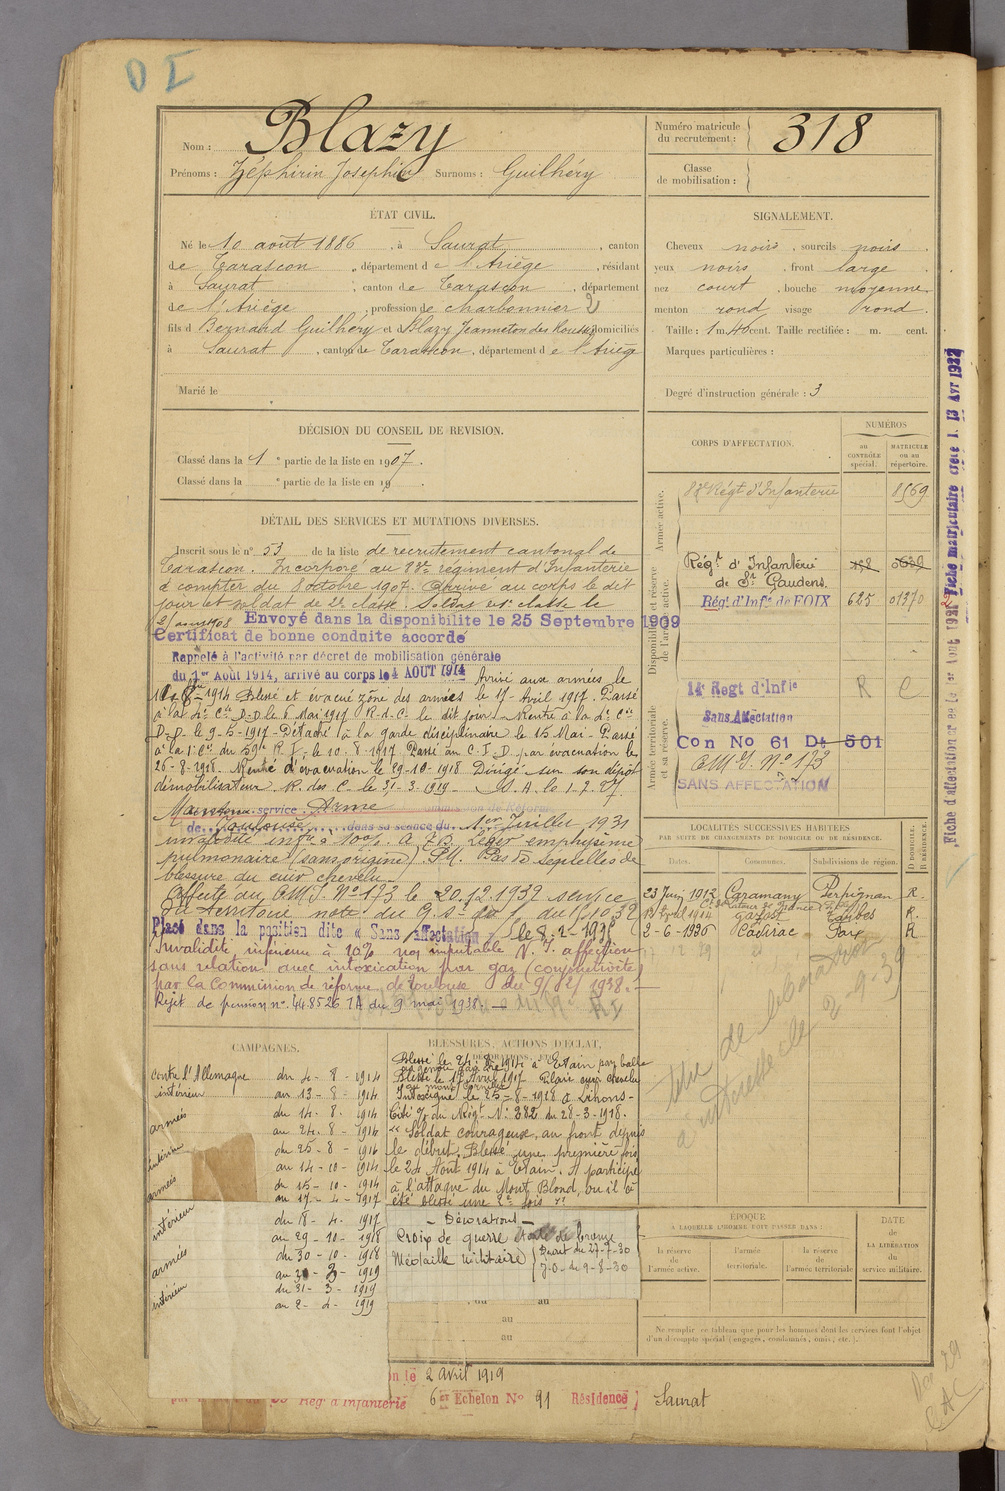 D I
Nom : Blazy
Prénoms : Zéphirin Joseph Surnoms : Guilhéry
Numéro matricule du recrutement : 318
Classe de mobilisation :
ÉTAT CIVIL.
Né le 10 août 1886, à Saurat, canton
de Tarascon, département de l'Ariège, résidant
à Saurat, canton de Tarascon, département
de l'Ariège, profession de charbonnier 2
fils d Bernard Guilhéry et d Blazy Jeanneton domiciliés
à Saurat, canton de Tarascon, département de l'Ariège
Marié le
SIGNALEMENT.
Cheveux noirs, sourcils noirs.
yeux noirs, front large
nez court, bouche moyenne,
menton rond visage rond.
Taille : 1 m. cent. Taille rectifiée : m. cent.
Marques particulières :
Degré d'instruction générale : 3
DÉCISION DU CONSEIL DE REVISION.
Classé dans la 1e partie de la liste en 1907.
Classé dans la e partie de la liste en 19 .
DÉTAIL DES SERVICES ET MUTATIONS DIVERSES.
Inscrit sous le n° 53 de la liste de recrutement cantonal de
Tarascon. Incorporé au 83e régiment d'Infanterie
à compter du 8 octobre 1907. Arrivé au corps le dit
jour et soldat de 2e classe. Soldat de 1e classe le
Envoyé dans la disponibilité le 25 Septembre 1909
Certificat de bonne conduite accordé
Rappelé à l'activité par décret de mobilisation générale
du 1er Août 1914, arrivé au corps le 4 AOUT 1914 Arrivé aux armées le
1914 Blessé et évacué zône des armées le 17 Avril 1917. Passé
à la 4e Cie D.D le 6 Mai 1917 R.d.C. le dit jour. Rentré à la 4e Cie
D.D. le 9-5-1917 - Détaché à la garde disciplinaire le 15 Mai - Passé
à la 1e Cie du 59e R.I. le 10.8.1917. Passé au C.I.D. par évacuation le
26-8-1918. Rentré d'évacuation le 29-10-1918 Dirigé sur son dépôt
démobilisateur R. des C. le 31-3-1919.
Maintenu service Armé Commission de Réforme
de Toulouse dans sa séance du 1er Juillet 1931
invalidité infre à 10% Léger emphysème
pulmonaire (sans origine) P.M. Pas de séquelles de
blessure du cuir chevelu.
Affecté au CMI. N° 173 le 20.12.1932 service
du territoire note du G.
Placé dans la position dite « Sans affectation » le 8.2.1938
Invalidité inférieure à 10% non imputable N.I. affection
sans relation avec intoxication par gaz (conjonctivite)
par la Commission de réforme de Toulouse du 9/8/1938.
Rejet de pension n° 448526 TA du 9 mai 1938.
CORPS D'AFFECTATION.
NUMÉROS
au CONTRÔLE spécial.
MATRICULE ou au répertoire.
Armée active.
83e Régt d'Infanterie 8569
Disponibilité et réserve de l'armée active.
Régt d'Infanterie
de St Gaudens.
Régt d'Infie de FOIX 625 01370
Armée territoriale et sa réserve.
14e Regt d'Infie R C
Sans Affectation
Con No 61 Dt 501
CMI. N° 173
SANS AFFECTATION
LOCALITÉS SUCCESSIVES HABITÉES
PAR SUITE DE CHANGEMENTS DE DOMICILE OU DE RÉSIDENCE.
Dates. Communes. Subdivisions de région.
D DOMICILE. R RÉSIDENCE.
23 Juin 1912 Caramany Perpignan R.
Avril 1914 Gazost Tarbes R.
2-6-1926 Foix R
17 12 29
2-9-39
CAMPAGNES.
contre l'Allemagne du 4-8-1914
intérieur au 13-8-1914
armées du 14.8.1914
au 24.8-1914
intérieur du 25-8-1914
au 14-10-1914
armées du 15-10-1914
au 17-4-1917
intérieur du 18-4.1917
au 29-10-1918
armées du 30-10-1918
au 30-3-1919
intérieur du 31-3-1919
au 2-4-1919
BLESSURES, ACTIONS D'ÉCLAT, DÉCORATIONS, ETC.
Blessé le 24.8.1914 à Etain par balle
Blessé le 17 Avril 1917 Plaie cuir chevelu
au mont Cornillet
Intoxiqué le 25-8-1918 à Lihons-
Cité O/ du Régt N° 282 du 28-3-1918.
"Soldat courageux, au front depuis
le début. Blessé une première fois
le 24 Août 1914 à Etain. A participé
à l'attaque du Mont Blond, où il a
été blessé une 2e fois"
- Décorations -
Croix de guerre étoile de bronze
Médaille Militaire (Décret du 27-7-30
J.O. du 9-8-30
ou au
au
au
ÉPOQUE
À LAQUELLE L'HOMME DOIT PASSER DANS :
la réserve de l'armée active.
l'armée territoriale.
la réserve de l'armée territoriale
DATE de LA LIBÉRATION du service militaire.
Ne remplir ce tableau que pour les hommes dont les services font l'objet
d'un décompte spécial (engagés, condamnés, omis, etc.).
on le 2 avril 1919
Rég. d'Infanterie 6e Echelon N° 91 Résidence) Saurat